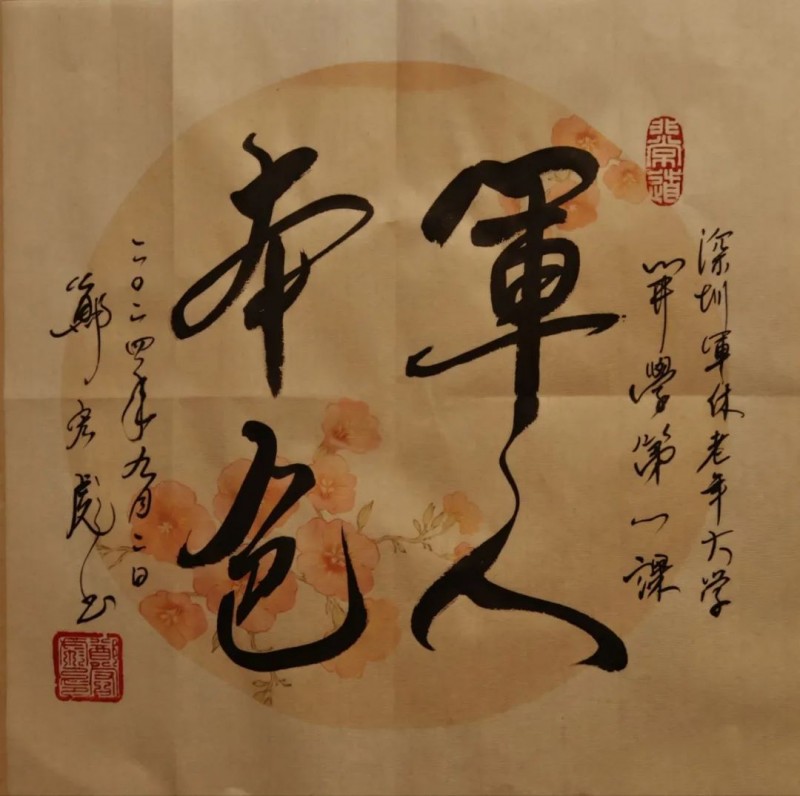 深圳軍休老年大学
開學第一課
軍人
本色
二〇二四年九月二日
鄭宏彪书
非常道